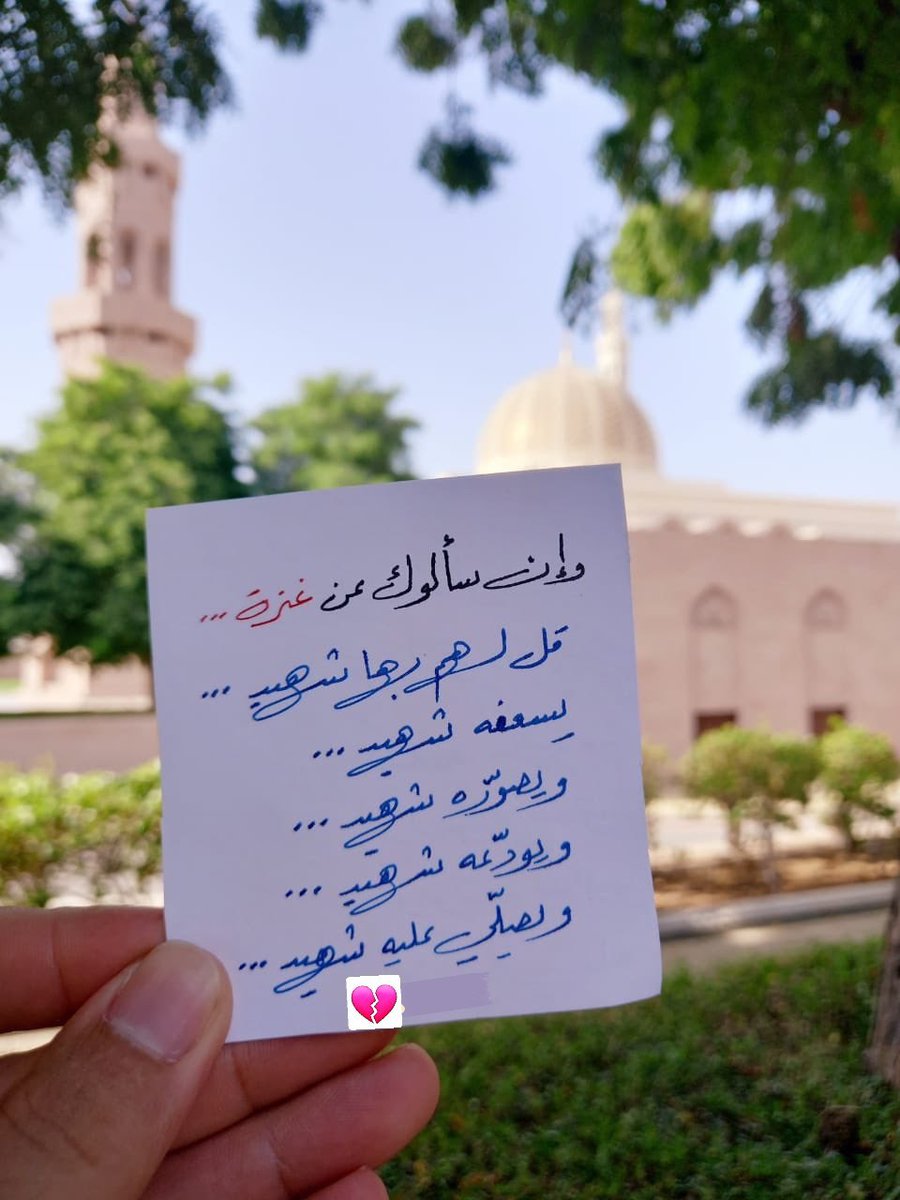 وإن سألوك عن غزة ...
قل لهم بها شهيد ...
يسعفه شهيد ...
ويصوّره شهيد ...
ويودّعه شهيد ...
ويصلّي عليه شهيد ...